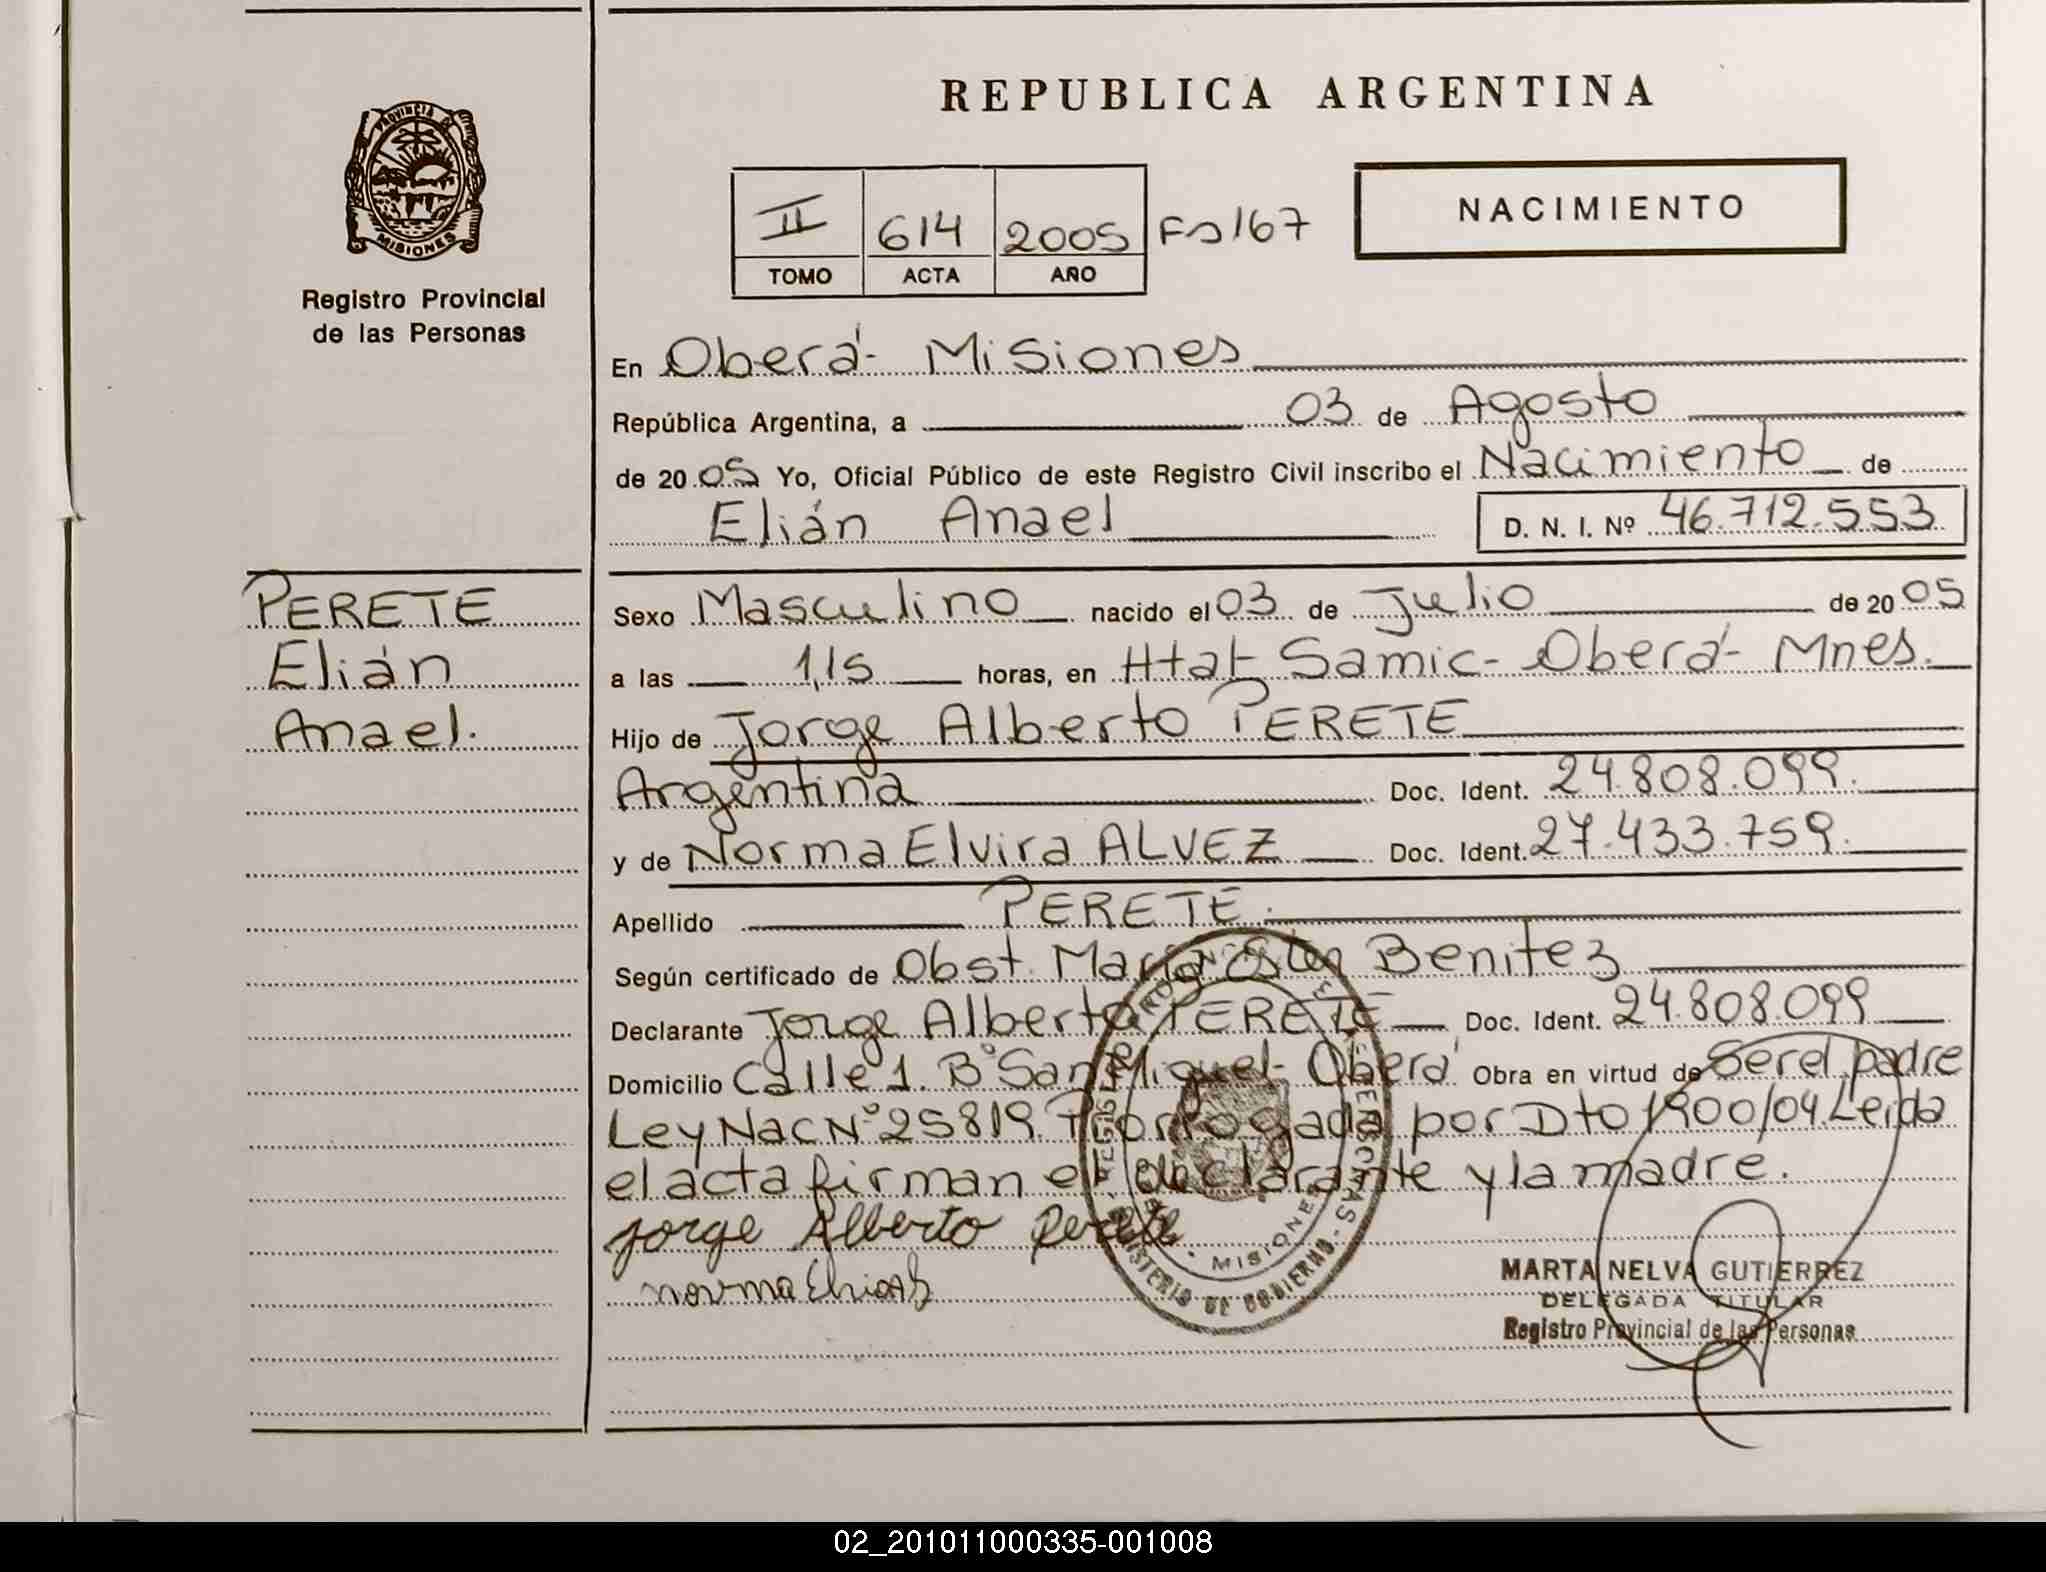 REPUBLICA ARGENTINA
PROVINCIA DE
MISIONES
Registro Provincial
de las Personas
NACIMIENTO
II 614 2005 Fs 167
TOMO ACTA AÑO
En Oberá - Misiones
República Argentina, a 03 de Agosto
de 20 05 Yo, Oficial Público de este Registro Civil inscribo el Nacimiento de
Elián Anael D. N. I. Nº 46.712.553
PERETE
Elián
Anael.
Sexo Masculino nacido el 03 de Julio de 20 05
a las 1,15 horas, en Htal Samic - Oberá - Mnes.
Hijo de Jorge Alberto PERETE
Argentina Doc. Ident. 24.808.099.
y de Norma Elvira ALVEZ Doc. Ident. 27.433.759.
Apellido PERETE.
Según certificado de Obst. María Ester Benitez
Declarante Jorge Alberto PERETE Doc. Ident. 24.808.099
Domicilio Calle 1. Bº San Miguel - Oberá Obra en virtud de Ser el padre
Ley Nac Nº 25819. Prorrogada por Dto 1900/04. Leida
el acta firman el declarante y la madre.
Jorge Alberto Perete
norma
MISIONES
MINISTERIO DE GOBIERNO
MARTA NELVA GUTIERREZ
DELEGADA TITULAR
Registro Provincial de las Personas
02_201011000335-001008